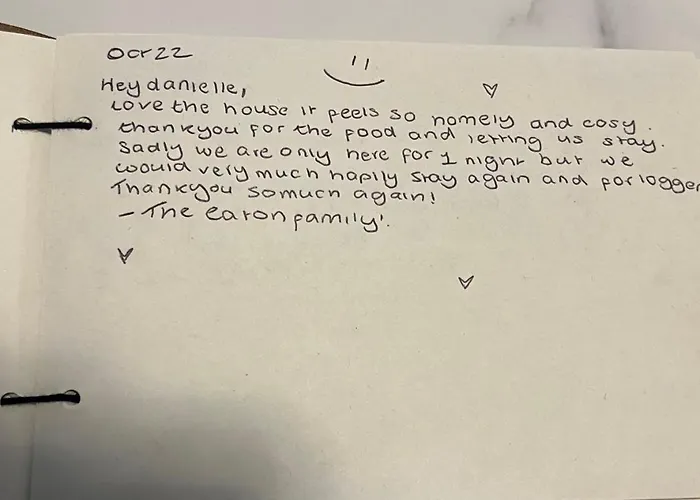 Oct 22
Hey danielle,
Love the house it feels so homely and cosy.
thankyou for the food and letting us stay.
Sadly we are only here for 1 night but we
would very much hapily stay again and for logger
Thankyou somuch again!
- The eaton family'.